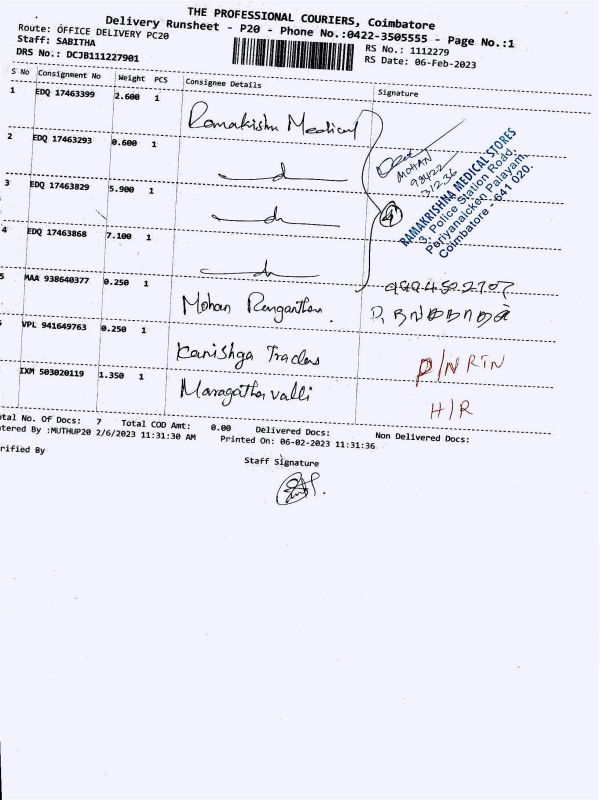 THE PROFESSIONAL COURIERS, Coimbatore
Delivery Runsheet - P20 - Phone No.:0422-3505555 - Page No.:1
Route: OFFICE DELIVERY PC20
Staff: SABITHA
DRS No.: DCJB111227901
RS No.: 1112279
RS Date: 06-Feb-2023
S No Consignment No Weight PCS Consignee Details Signature
1 EDQ 17463399 2.600 1 Ramakishn Medical
2 EDQ 17463293 0.600 1
3 EDQ 17463829 5.900 1
4 EDQ 17463868 7.100 1
MOHAN
98422
31236
4
RAMAKRISHNA MEDICAL STORES
3, Police Station Road,
Periyanaicken Palayam,
Coimbatore - 641 020.
5 MAA 938640377 0.250 1 Mohan Ranganthan.
VPL 941649763 0.250 1 Kanishga Traders
D/N RTN
IXM 503020119 1.350 1 Maragatha valli
H/R
otal No. Of Docs: 7 Total COD Amt: 0.00 Delivered Docs: Non Delivered Docs:
tered By :MUTHUP20 2/6/2023 11:31:30 AM Printed On: 06-02-2023 11:31:36
rified By
Staff Signature